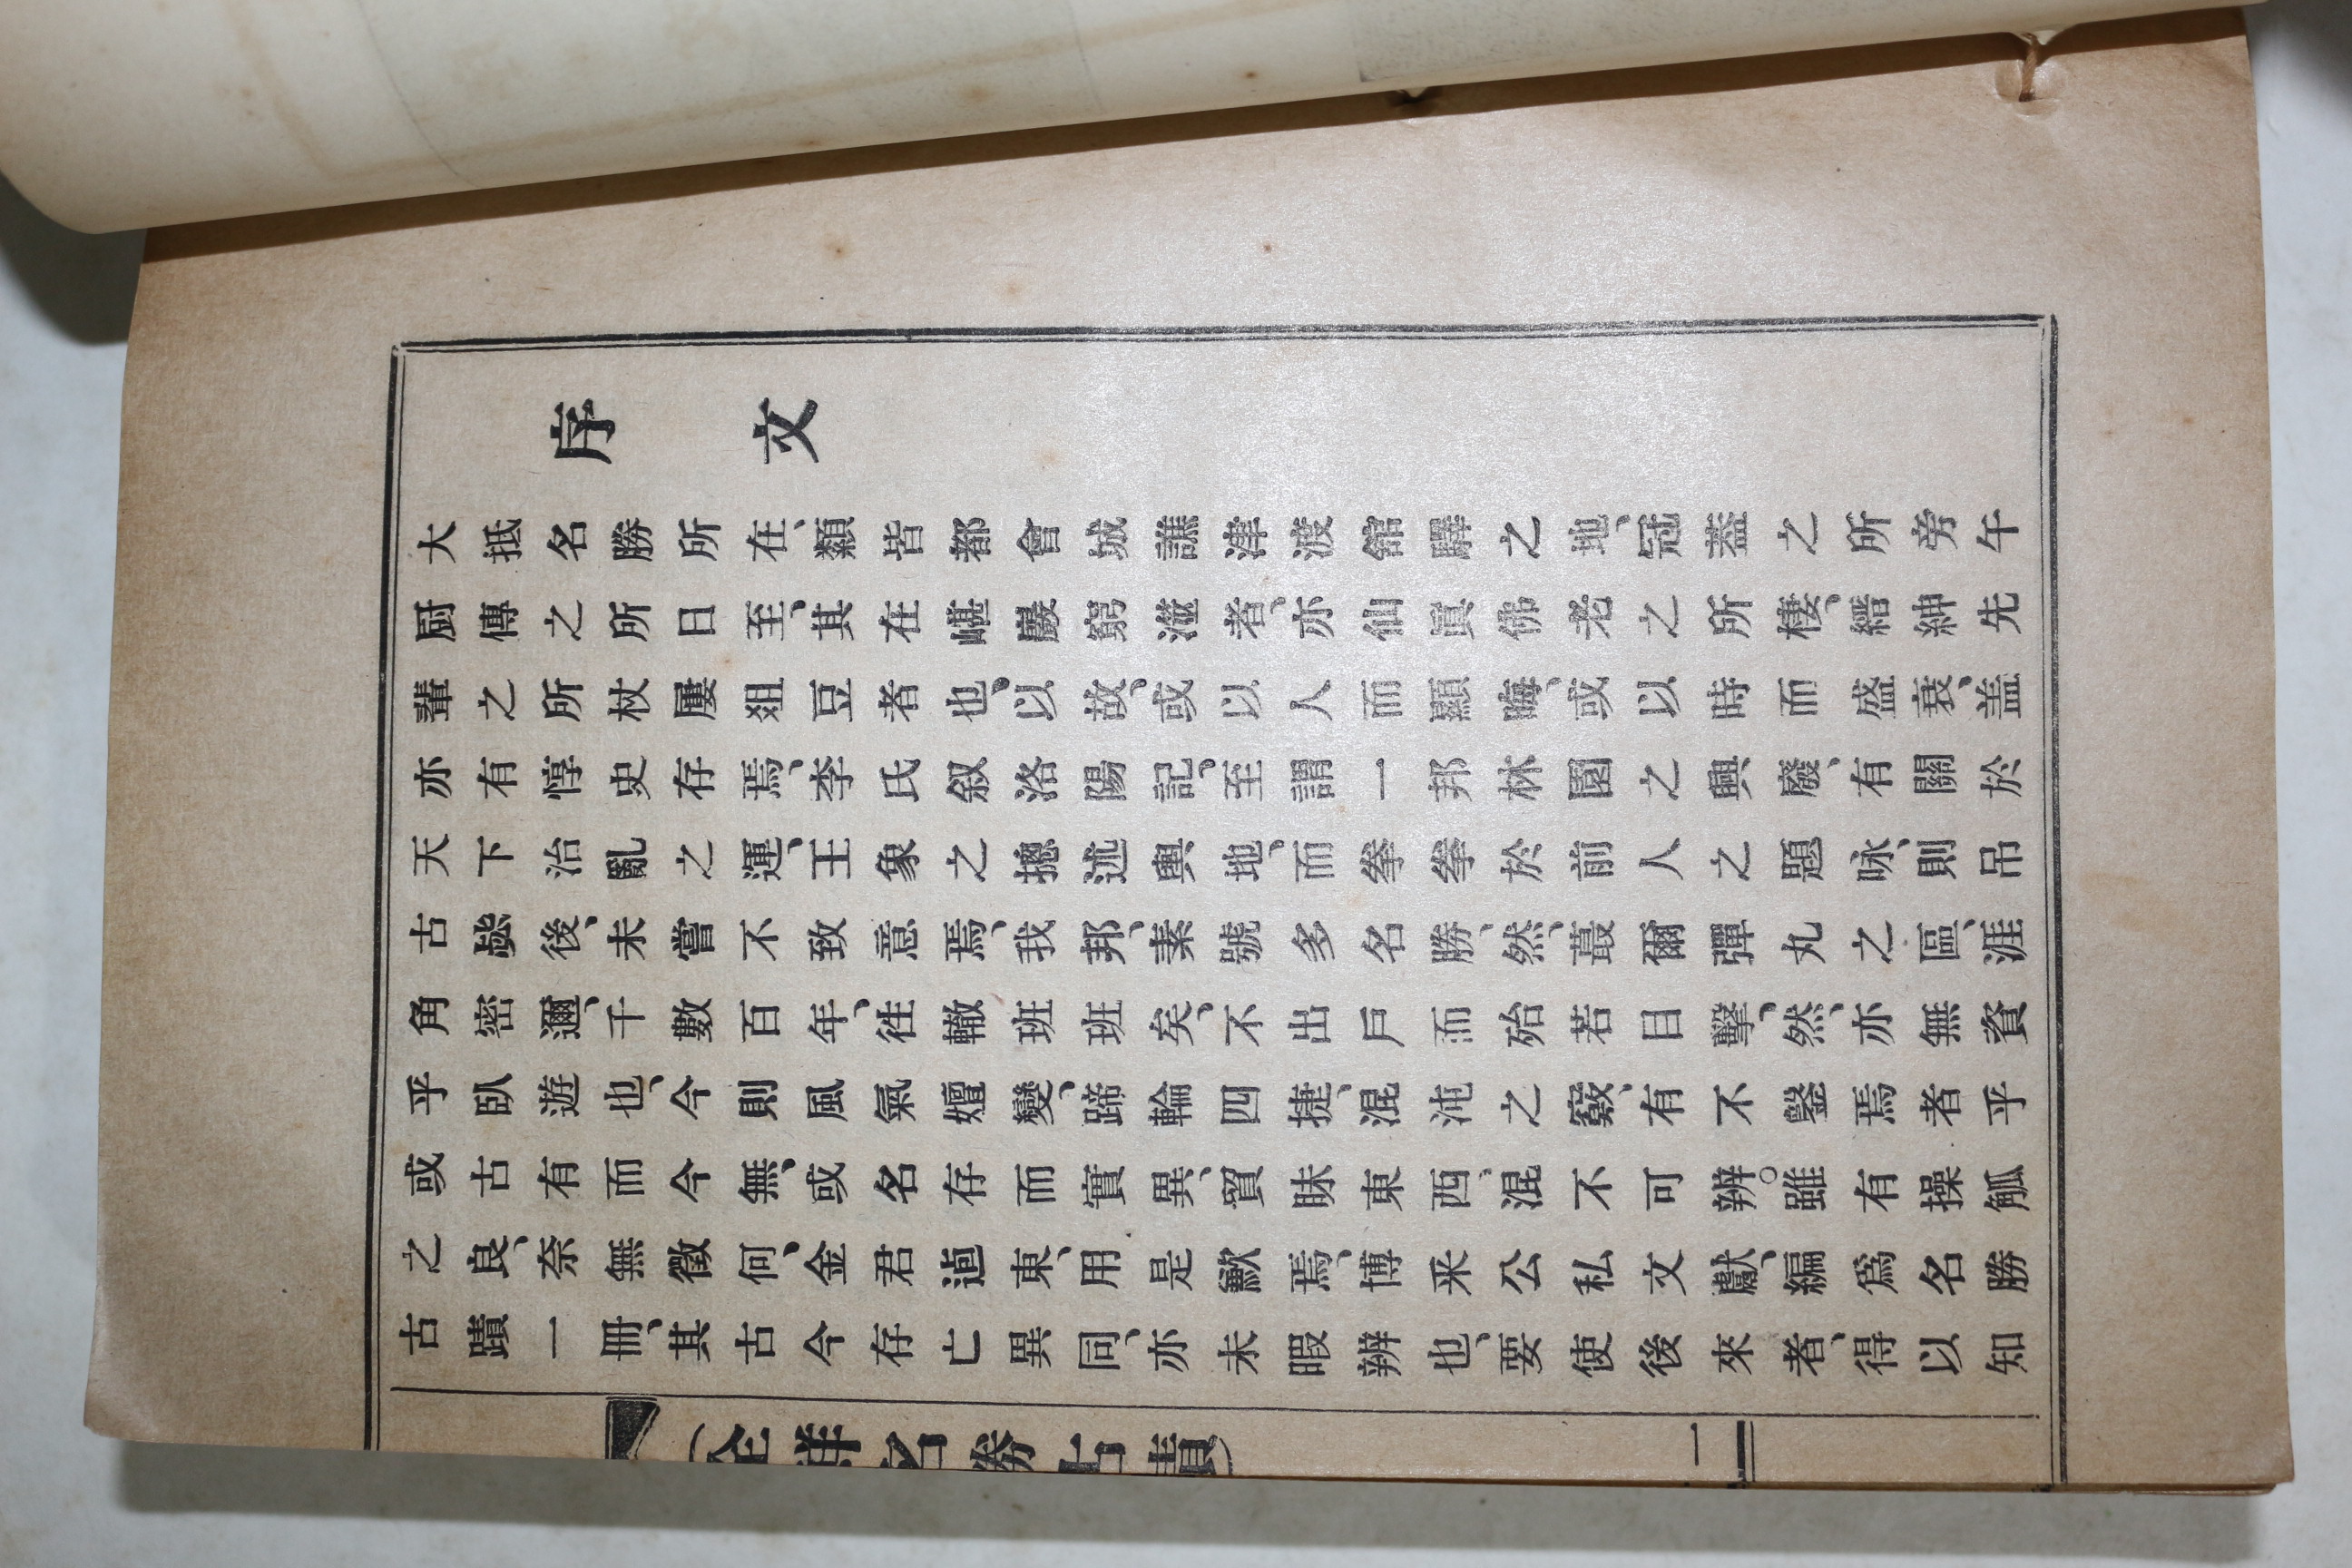 序文
大抵名勝所在、類皆都會城譙津渡舘驛之地、冠葢之所旁午
厨傳之所日至、其在嵁巖窮澨者、亦仙眞佛老之所棲、縉紳先
輩之所杖屨俎豆者也、以故、或以人而顯晦、或以時而盛衰、盖
亦有惇史存焉、李氏叙洛陽記、至謂一邦林園之興廢、有關於
天下治亂之運、王象之摠述輿地、而拳拳於前人之題咏、則吊
古毖後、未嘗不致意焉、我邦、素號多名勝、然、蕞爾彈丸之區、涯
角密邇、千數百年、徃轍班班矣、不出戶而殆若目擊、然、亦無資
乎臥遊也、今則風氣嬗變、蹄輪四捷、混沌之竅、有不鑿焉者乎
或古有而今無、或名存而實異、貿昧東西、混不可辨。雖有操觚
之良、奈無徵何、金君逌東、用是歉焉、博釆公私文獻、編爲名勝
古蹟一冊、其古今存亡異同、亦未暇辨也、要使後來者、得以知
(全鮮名勝古蹟)
二